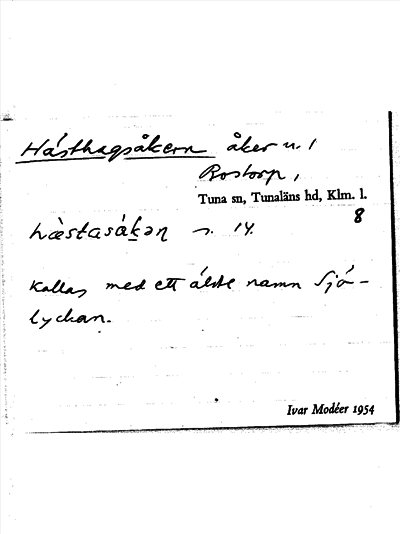 Hästhagsåkern åker n. 1
Rostorp,
Tuna sn, Tunaläns hd, Klm. l.
8
hæ̀stasákən s. 14.
Kallas med ett äldre namn Sjö-
lyckan.
Ivar Modéer 1954